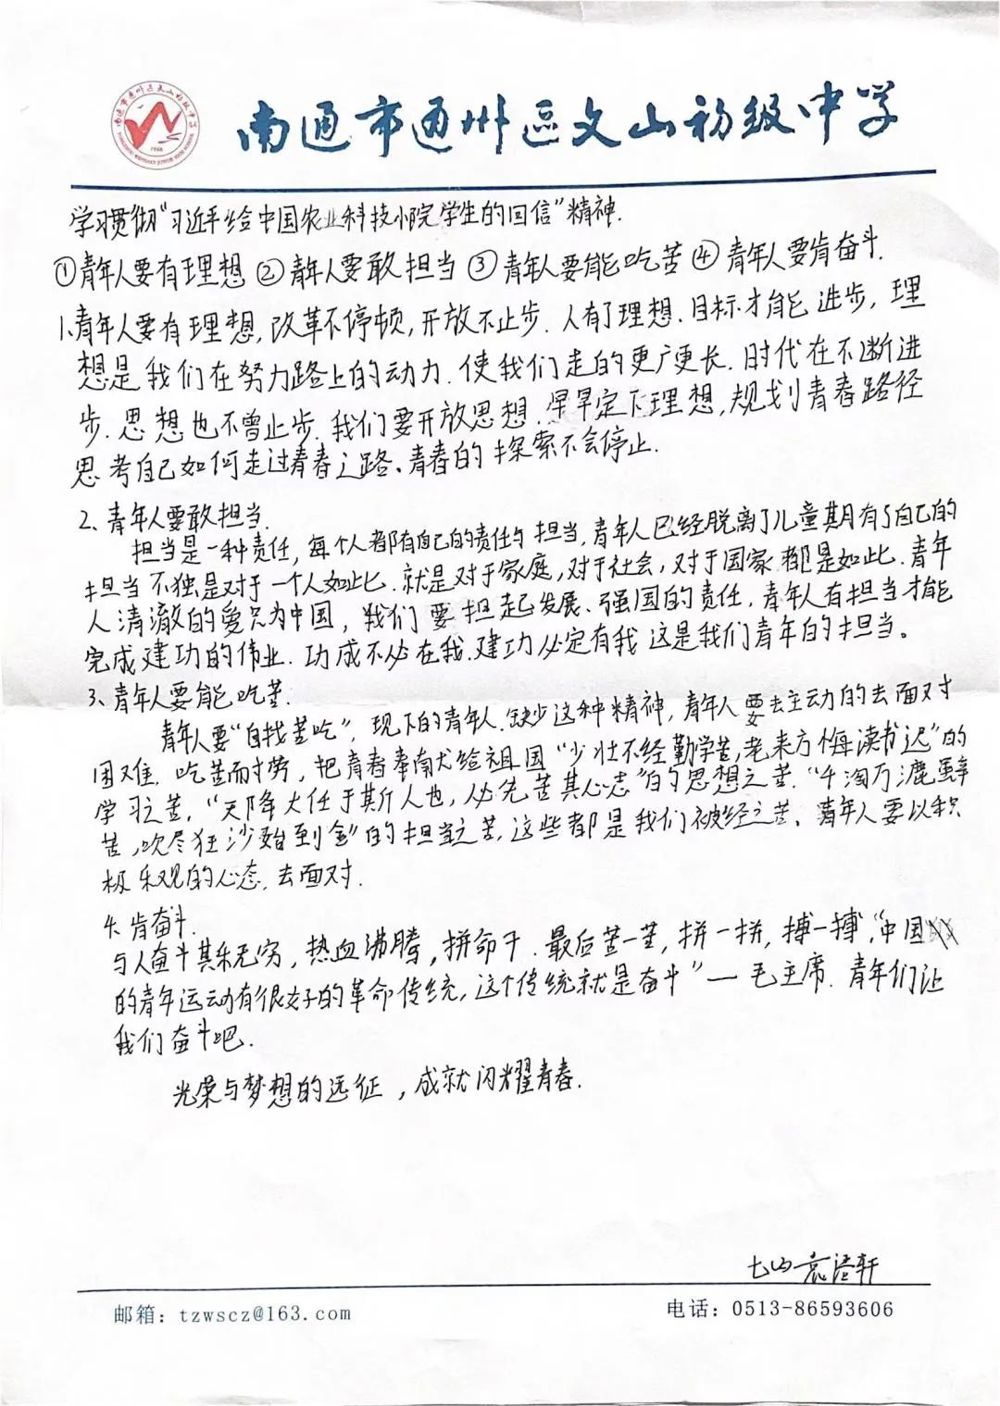 南通市通州区文山初级中学
学习贯彻“习近平给中国农业科技小院学生的回信”精神.
①青年人要有理想 ②青年人要敢担当 ③青年人要能吃苦 ④青年人要肯奋斗.
1、青年人要有理想,改革不停顿,开放不止步.人有了理想.目标才能进步,理
想是我们在努力路上的动力.使我们走的更广更长.时代在不断进
步.思想也不曾止步.我们要开放思想.早早定下理想,规划青春路径
思考自己如何走过青春之路、青春的探索不会停止.
2、青年人要敢担当.
担当是一种责任,每个人都有自己的责任与担当,青年人已经脱离了儿童期有了自己的
担当不独是对于一个人如此.就是对于家庭,对于社会,对于国家.都是如此.青年
人清澈的爱只为中国,我们要担起发展、强国的责任.青年人有担当才能
完成建功的伟业.功成不必在我.建功必定有我 这是我们青年的担当。
3、青年人要能吃苦.
青年人要“自找苦吃”,现下的青年人.缺少这种精神,青年人要去主动的去面对
困难.吃苦耐劳,把青春奉献给祖国“少壮不经勤学苦,老来方悔读书迟”的
学习之苦.“天降大任于斯人也,必先苦其心志”的思想之苦.“千淘万漉虽辛
苦,吹尽狂沙始到金”的担当之苦,这些都是我们被经之苦、青年人要以积
极乐观的心态.去面对.
4.肯奋斗.
与人奋斗其乐无穷,热血沸腾,拼命干.最后苦一苦,拼一拼,搏一搏,“中国
的青年运动有很好的革命传统,这个传统就是奋斗”一毛主席.青年们让
我们奋斗吧.
光荣与梦想的远征,成就闪耀青春.
邮箱:tzwscz@163.com
电话:0513-86593606